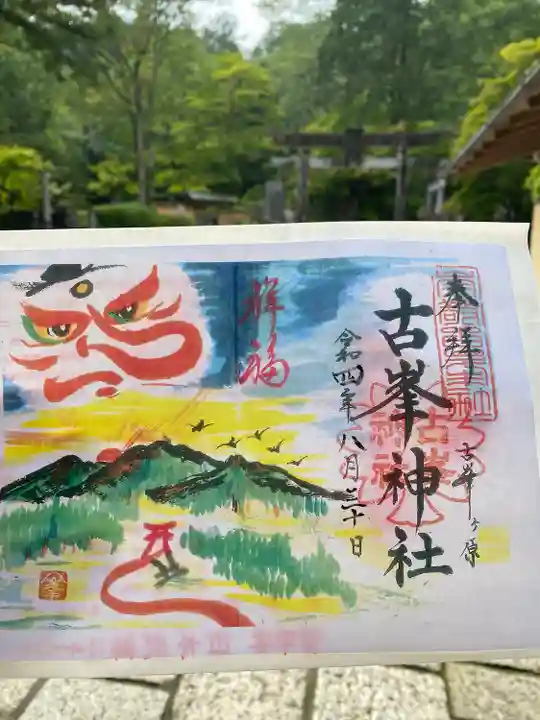 奉拝
古峯ヶ原
古峯神社
令和四年八月三十日
祥福